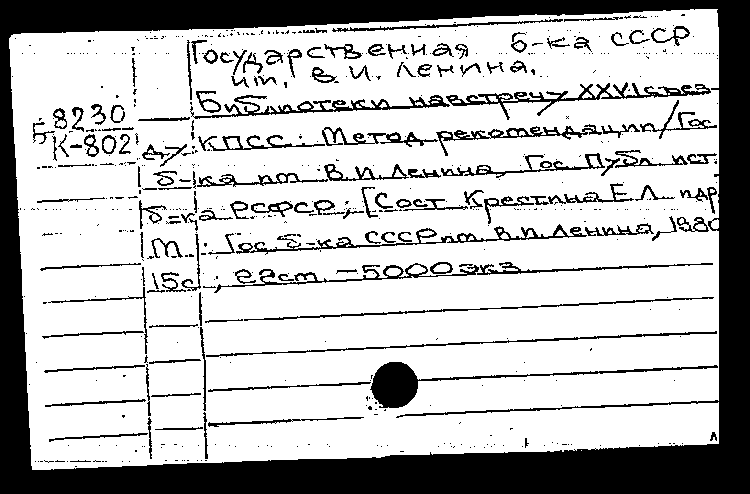 Государственная б-ка СССР
им. В.И. Ленина.
Библиотеки навстречу XXVI съез-
Б 8230
К-802
ду КПСС: Метод рекомендации/Гос
б-ка им В.И. Ленина, Гос Публ ист.
б-ка РСФСР; [Сост Крестина Е.Л. и др
М.: Гос. б-ка СССР им. В.И. Ленина, 1980
15с ; 22см. -5000 экз